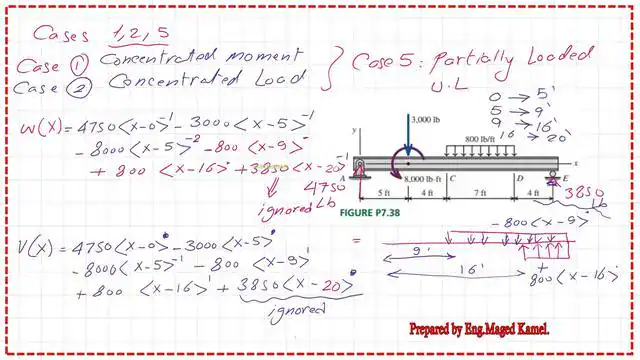 Cases 1,2,5
Case ① Concentrated moment
Case ② Concentrated Load
Case 5: Partially Loaded
U.L
0 → 5'
5 → 9'
9 → 16'
16 → 20'
W(X) = 4750<x-0>⁻¹ - 3000<x-5>⁻¹
- 8000<x-5>⁻² - 800<x-9>°
+ 800 <x-16>° + 3850<x-20>⁻¹
ignored
3,000 lb
800 lb/ft
y
x
8,000 lb·ft
A
B
C
D
E
4750
Lb
3850
Lb
5 ft
4 ft
7 ft
4 ft
FIGURE P7.38
V(X) = 4750<x-0>° - 3000<x-5>°
- 8000<x-5>⁻¹ - 800 <x-9>¹
+ 800 <x-16>¹ + 3850<x-20>°
ignored
=
- 800<x-9>°
9'
16'
+
800<x-16>°
Prepared by Eng.Maged Kamel.